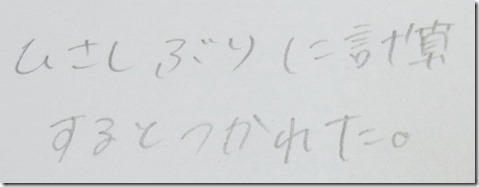 ひさしぶりに計算
するとつかれた。